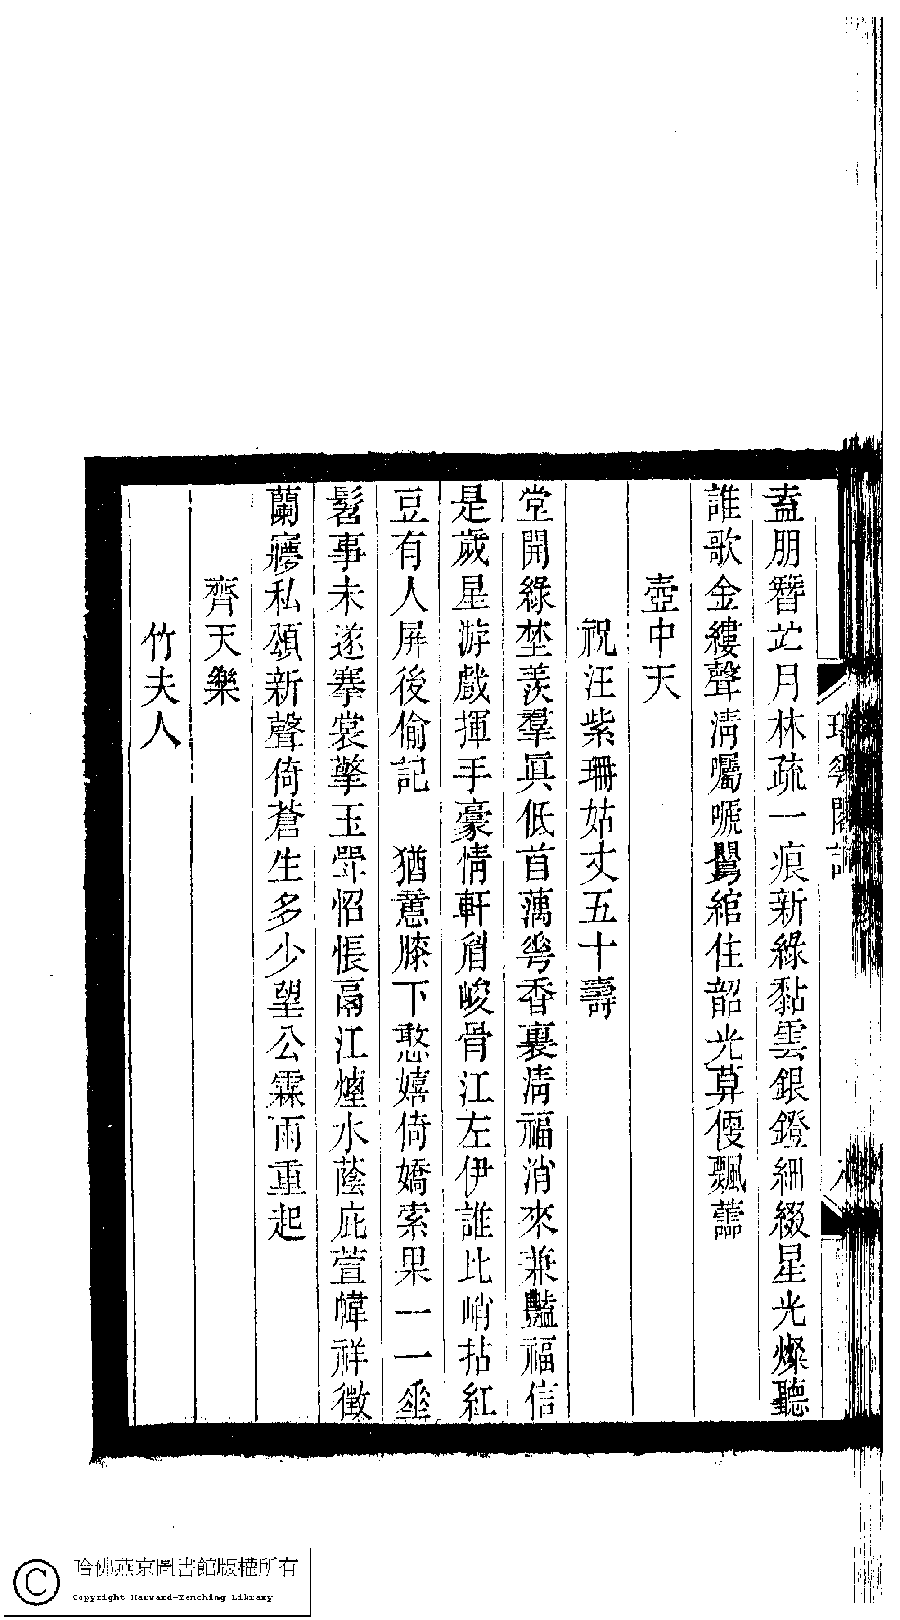 閣
盍朋簪月林疏一痕新綠黏雲銀鐙細綴星光燦聽
誰歌金縷聲清囑嗁鶯綰住韶光莫便飄
壺中天
祝汪紫珊姑丈五十壽
堂開綠埜羨羣眞低首萬蕚香裏淸福消來兼豔福信
是歲星游戲揮手豪情軒眉峻骨江左伊誰比峭拈紅
豆有人屏後偷記　猶憶膝下憨嬉倚嬌索果一一垂
髫事未遂搴裳擎玉斝怊悵鬲江煙水蔭庇萱幃祥徵
蘭寱私頌新聲倚蒼生多少望公霖雨重起
齊天樂
竹夫人
哈佛燕京圖書館版權所有
Copyright Harvard-Yenching Library